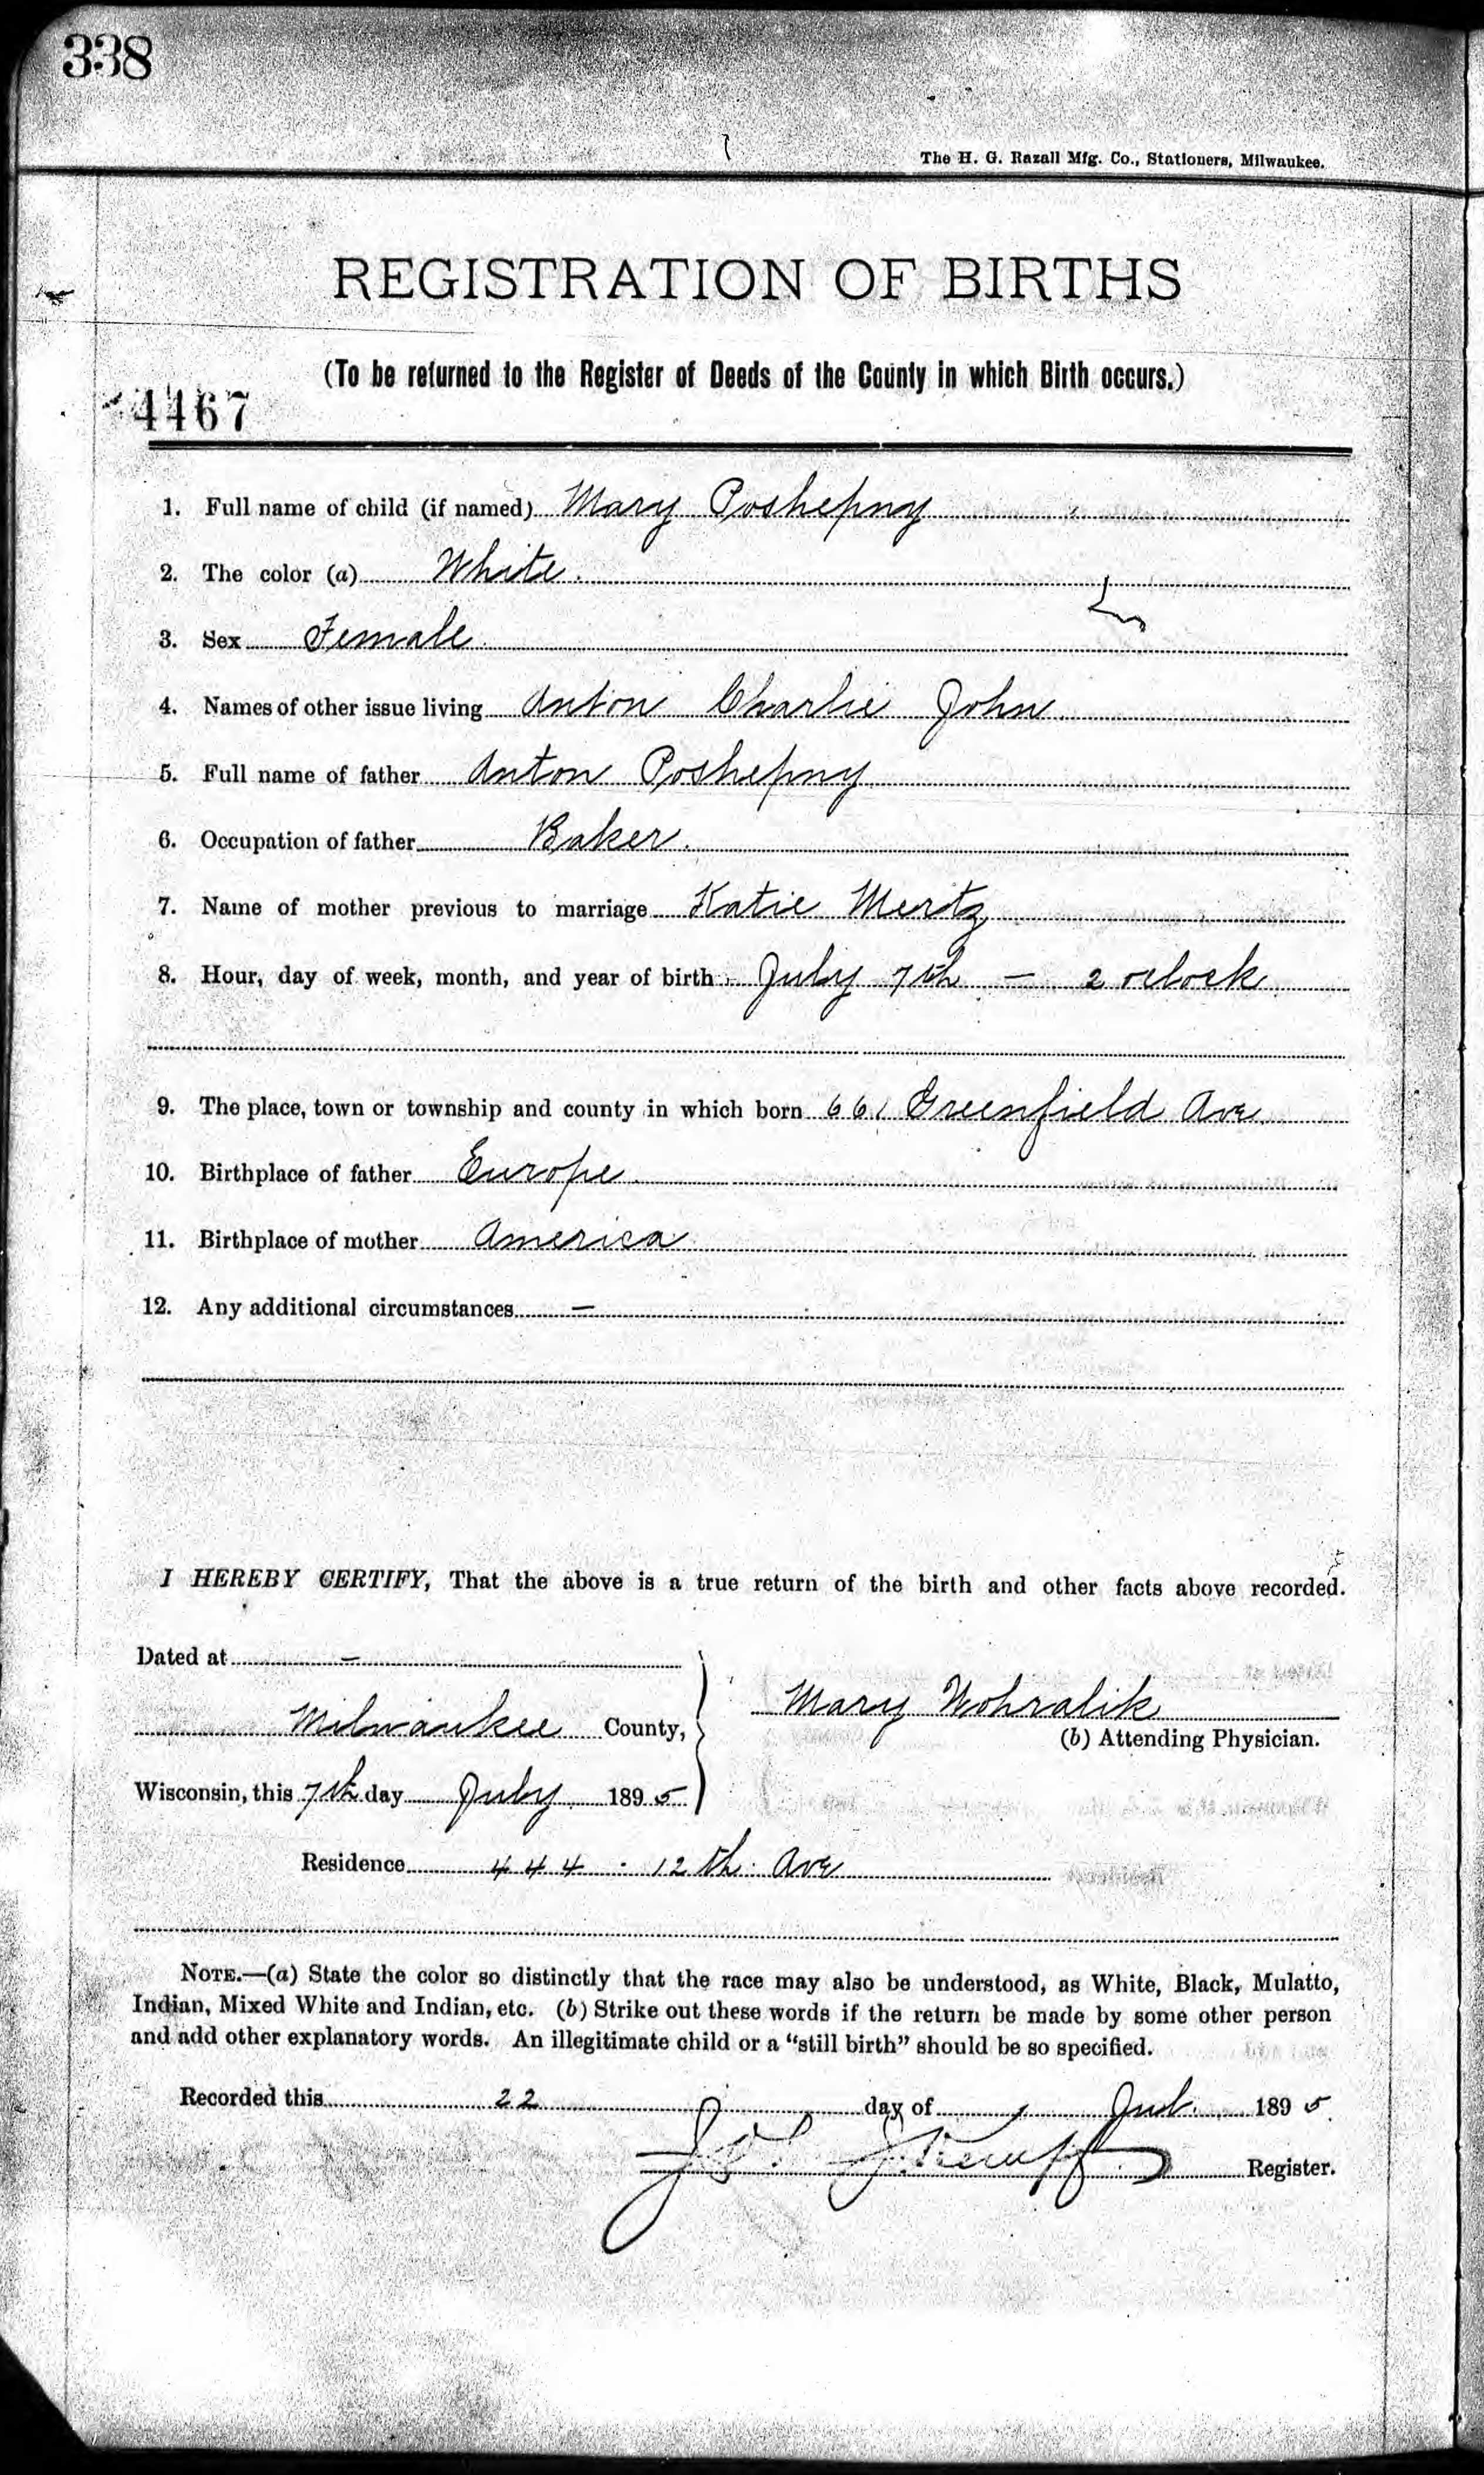 338
The H. G. Razall Mfg. Co., Stationers, Milwaukee.
REGISTRATION OF BIRTHS
(To be returned to the Register of Deeds of the County in which Birth occurs.)
4467
1. Full name of child (if named) Mary Poshepny
2. The color (a) White.
3. Sex Female
4. Names of other issue living Anton Charlie John
5. Full name of father Anton Poshepny
6. Occupation of father Baker.
7. Name of mother previous to marriage Katie Mertz
8. Hour, day of week, month, and year of birth July 7th — 2 oclock
9. The place, town or township and county in which born 661 Greenfield Ave
10. Birthplace of father Europe
11. Birthplace of mother America
12. Any additional circumstances —
I HEREBY CERTIFY, That the above is a true return of the birth and other facts above recorded.
Dated at —
Mary Wohralik
Milwaukee County,
(b) Attending Physician.
Wisconsin, this 7th day July 1895
Residence 444 · 12th Ave
NOTE.—(a) State the color so distinctly that the race may also be understood, as White, Black, Mulatto,
Indian, Mixed White and Indian, etc. (b) Strike out these words if the return be made by some other person
and add other explanatory words. An illegitimate child or a "still birth" should be so specified.
Recorded this 22 day of 1895
Register.